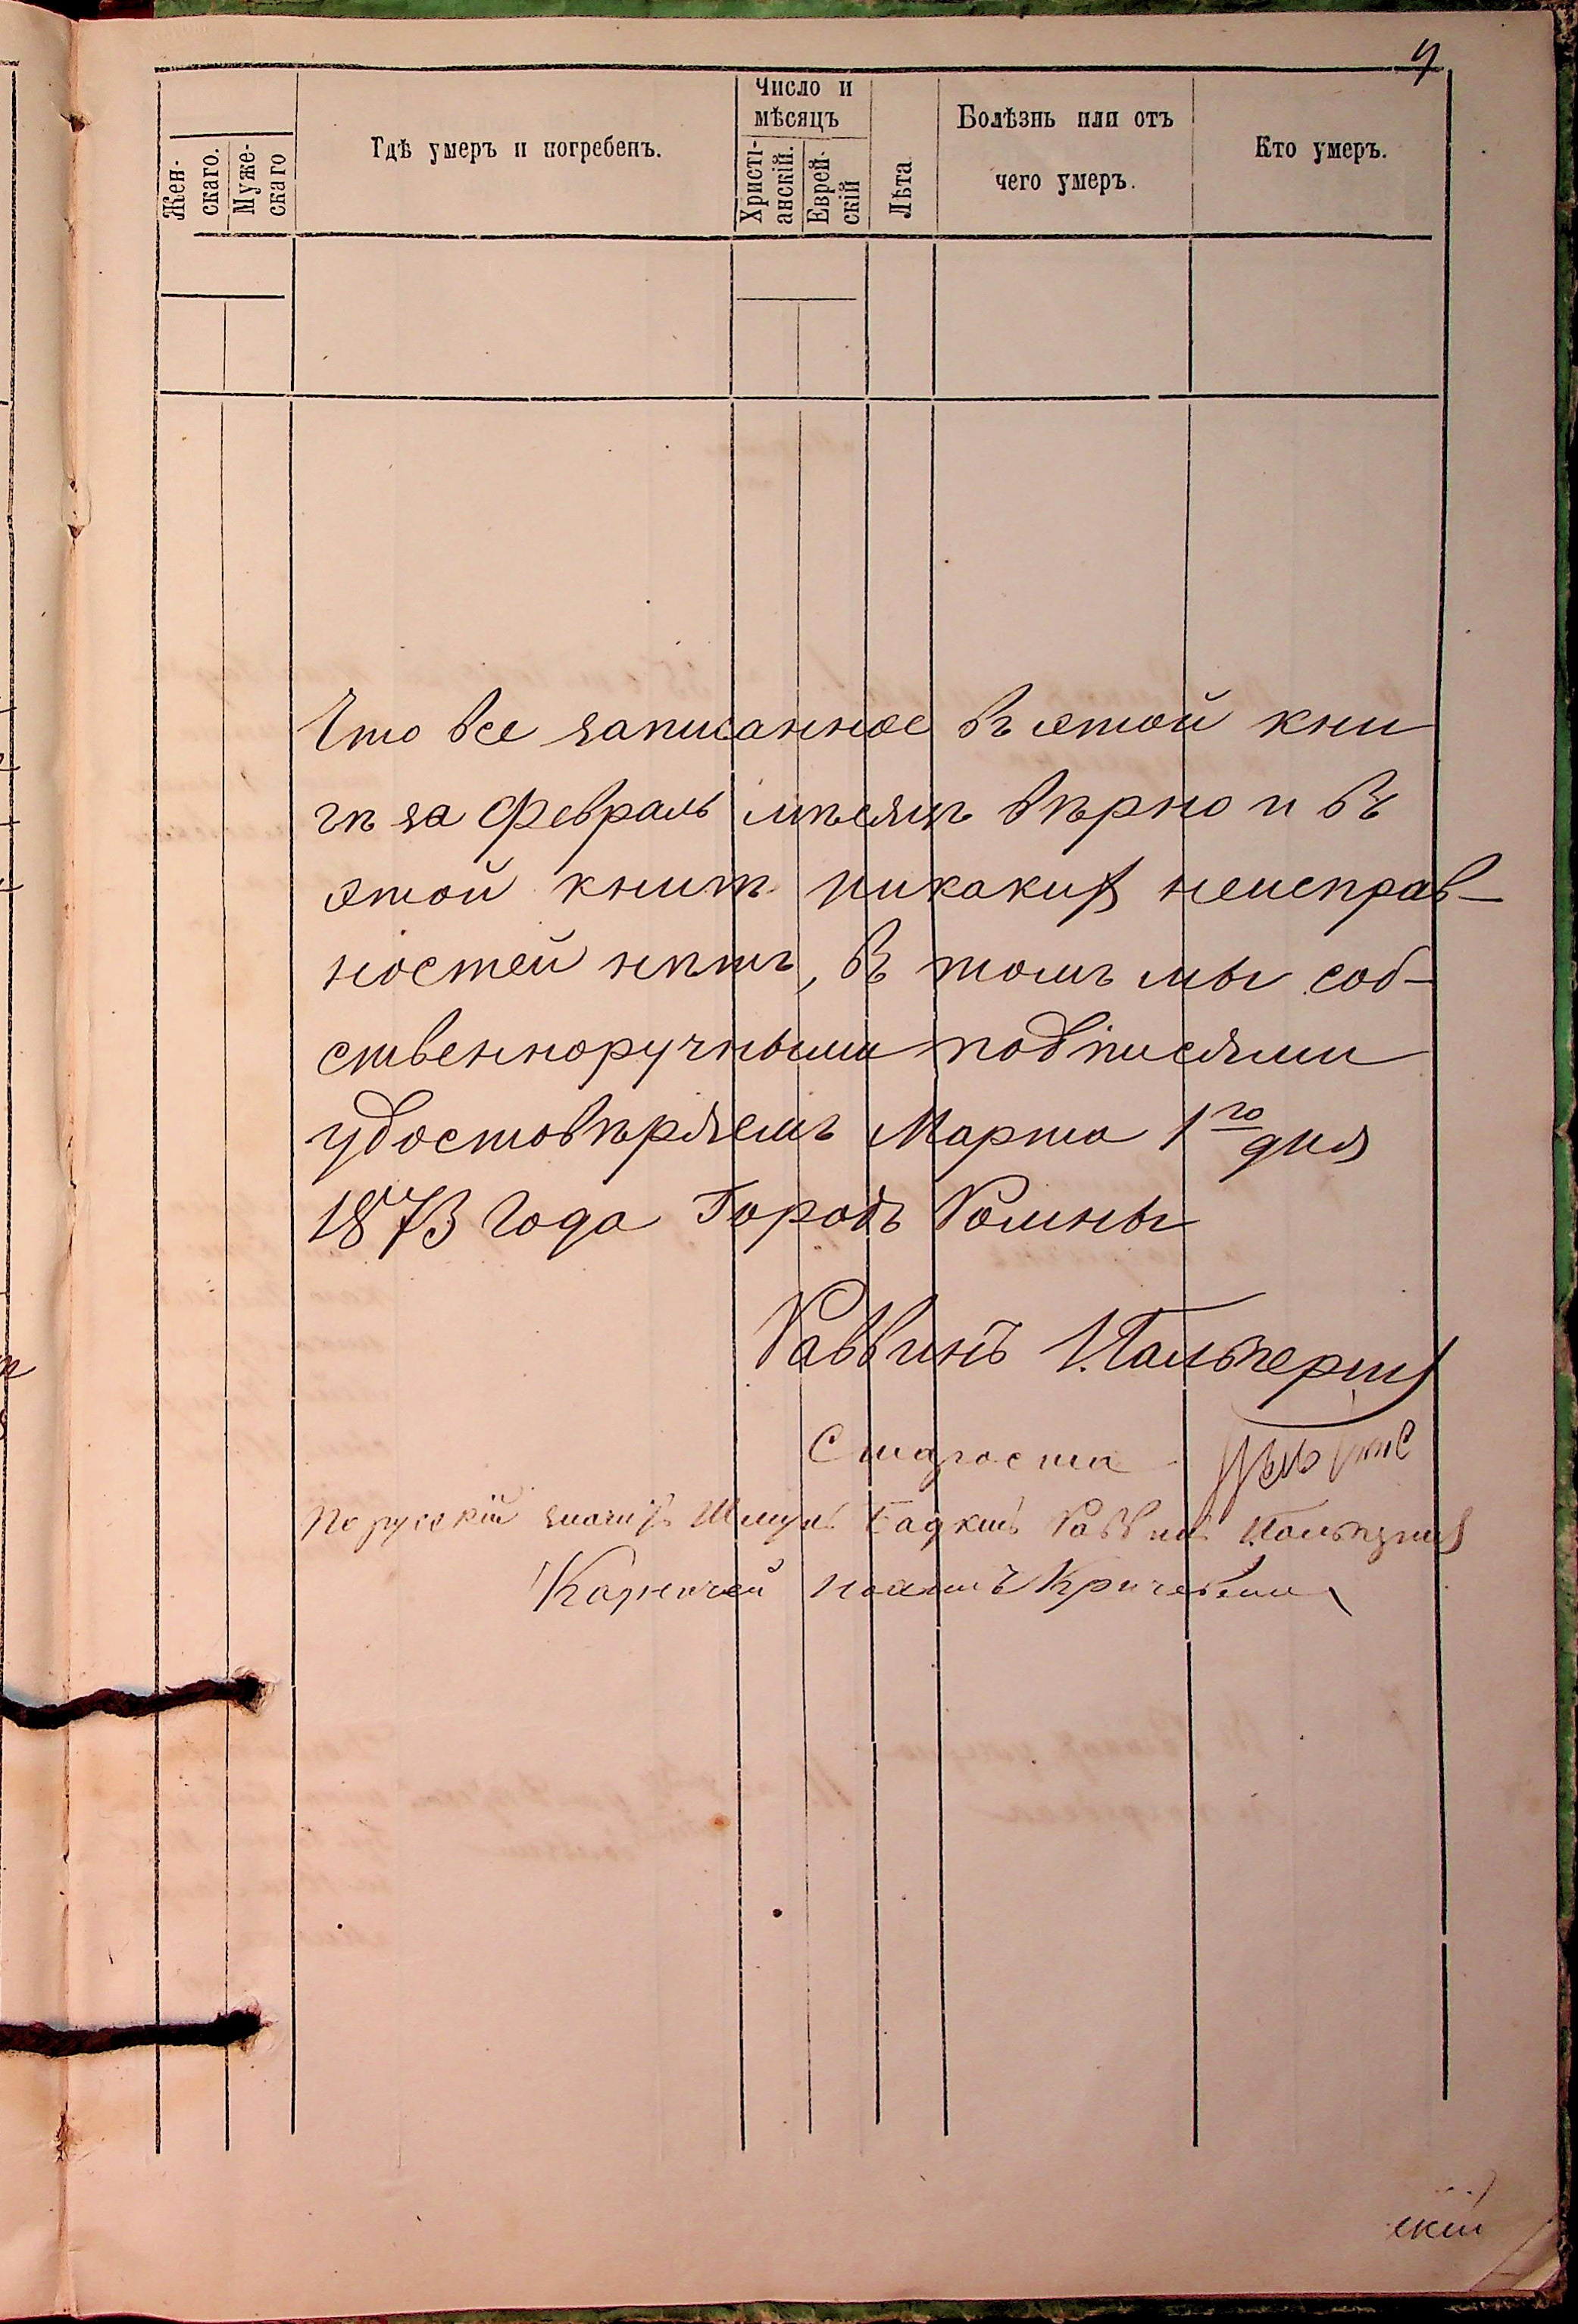 9
Жен-
скаго.
Муже-
скаго
Гдѣ умеръ и погребенъ.
Число и
мѣсяцъ
Христі-
анскій.
Еврей-
скій
Лѣта
Болѣзнь или отъ
чего умеръ.
Кто умеръ.
Что все записанное въ этой кни
гѣ за Февраль мѣсяцъ вѣрно и въ
этой книгѣ никакихъ неисправ-
ностей нѣтъ, въ томъ мы соб-
ственноручными подписями
удостовѣряемъ Марта 1го дня
1873 Года Городъ Ромны
Раввинъ И. Гальперинъ
Староста
По русскій значитъ Раввинъ И. Гальперинъ
Казначей
скій